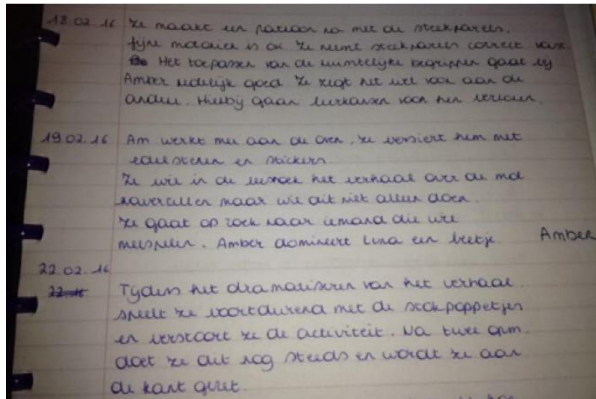 18.02.16 Ze maakt een patroon na met de steekparels.
fijne motoriek is ok Ze neemt steekparels correct vast
Het toepassen van de ruimtelijke begrippen gaat bij
Amber redelijk goed Ze zegt het wel voor aan de
andere. Hierbij gaan leerkansen voor hen verloren.
19.02.16 Am werkt mee aan de oven, ze versiert hem met
edelstenen en stickers
Ze wil in de leeshoek het verhaal over de mol
navertellen maar wil dit niet alleen doen.
Ze gaat op zoek naar iemand die wil
meespelen. Amber domineert Luna een beetje. Amber
22.02.16
22.16 Tijdens het dramatiseren van het verhaal
speelt ze voortdurend met de stokpoppetjes
en verstoort ze de activiteit. Na twee opm.
doet ze dit nog steeds en wordt ze aan
de kant gezet.